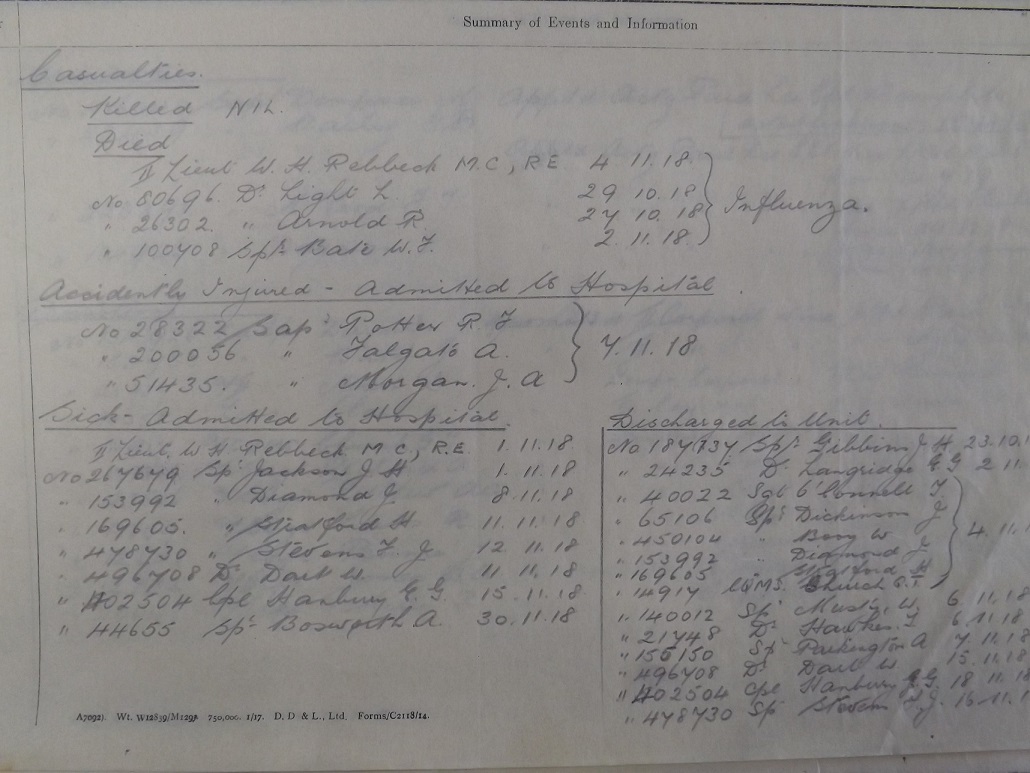 Summary of Events and Information
Casualties.
Killed NIL.
Died
II Lieut W. H. Rebbeck M.C, RE 4 11.18.
No 60696. Dr Light L. 29 10.18
" 26302. " Arnold R. 27 10.18
" 100708 Spr Bate W.F. 2. 11. 18.
Influenza.
Accidently Injured - Admitted to Hospital
No 28322 Sapr Potter R. F
" 200056 " Falgate A.
" 51435. " Morgan. J. A
7. 11. 18
Sick - Admitted to Hospital
II Lieut. W H Rebbeck M C, R.E. 1. 11.18
No 267679 Spr Jackson J H 1. 11.18
" 153992 " Diamond J. 8.11.18
" 169605. " Stratford H 11. 11. 18
" 478730 " Stevens F. J 12 11. 18
" 496708 Dr Dart W. 11 11. 18
" 402504 Cpl Hanbury G. G. 15. 11. 18
" 44655 Spr Bosworth A. 30.11.18
Discharged to Unit.
No 187737 Spr Gibbins J H 23.10.1
" 24235 Dr Langridge G G 2 11
" 40022 Sgt O'Connell T
" 65106 Spr Dickinson J
" 450104 " Bovy W
" 153992 " Diamond J
" 169605 " Stratford H
" 14917 CQMS. Church
4. 11.
" 140012 Spr Musty. W. 6 11.18
" 21748 Dr Hawkes. F 6 11.18
" 156150 Spr Parkington A 7. 11.18
" 496708 Dr Dart W 15. 11.18
" 402504 Cpl Hanbury G.G. 18 11. 18
" 478730 Spr Stevens F.J. 16. 11. 1
A7092). Wt. W12839/M1293 750,000. 1/17. D. D & L., Ltd. Forms/C2118/14.